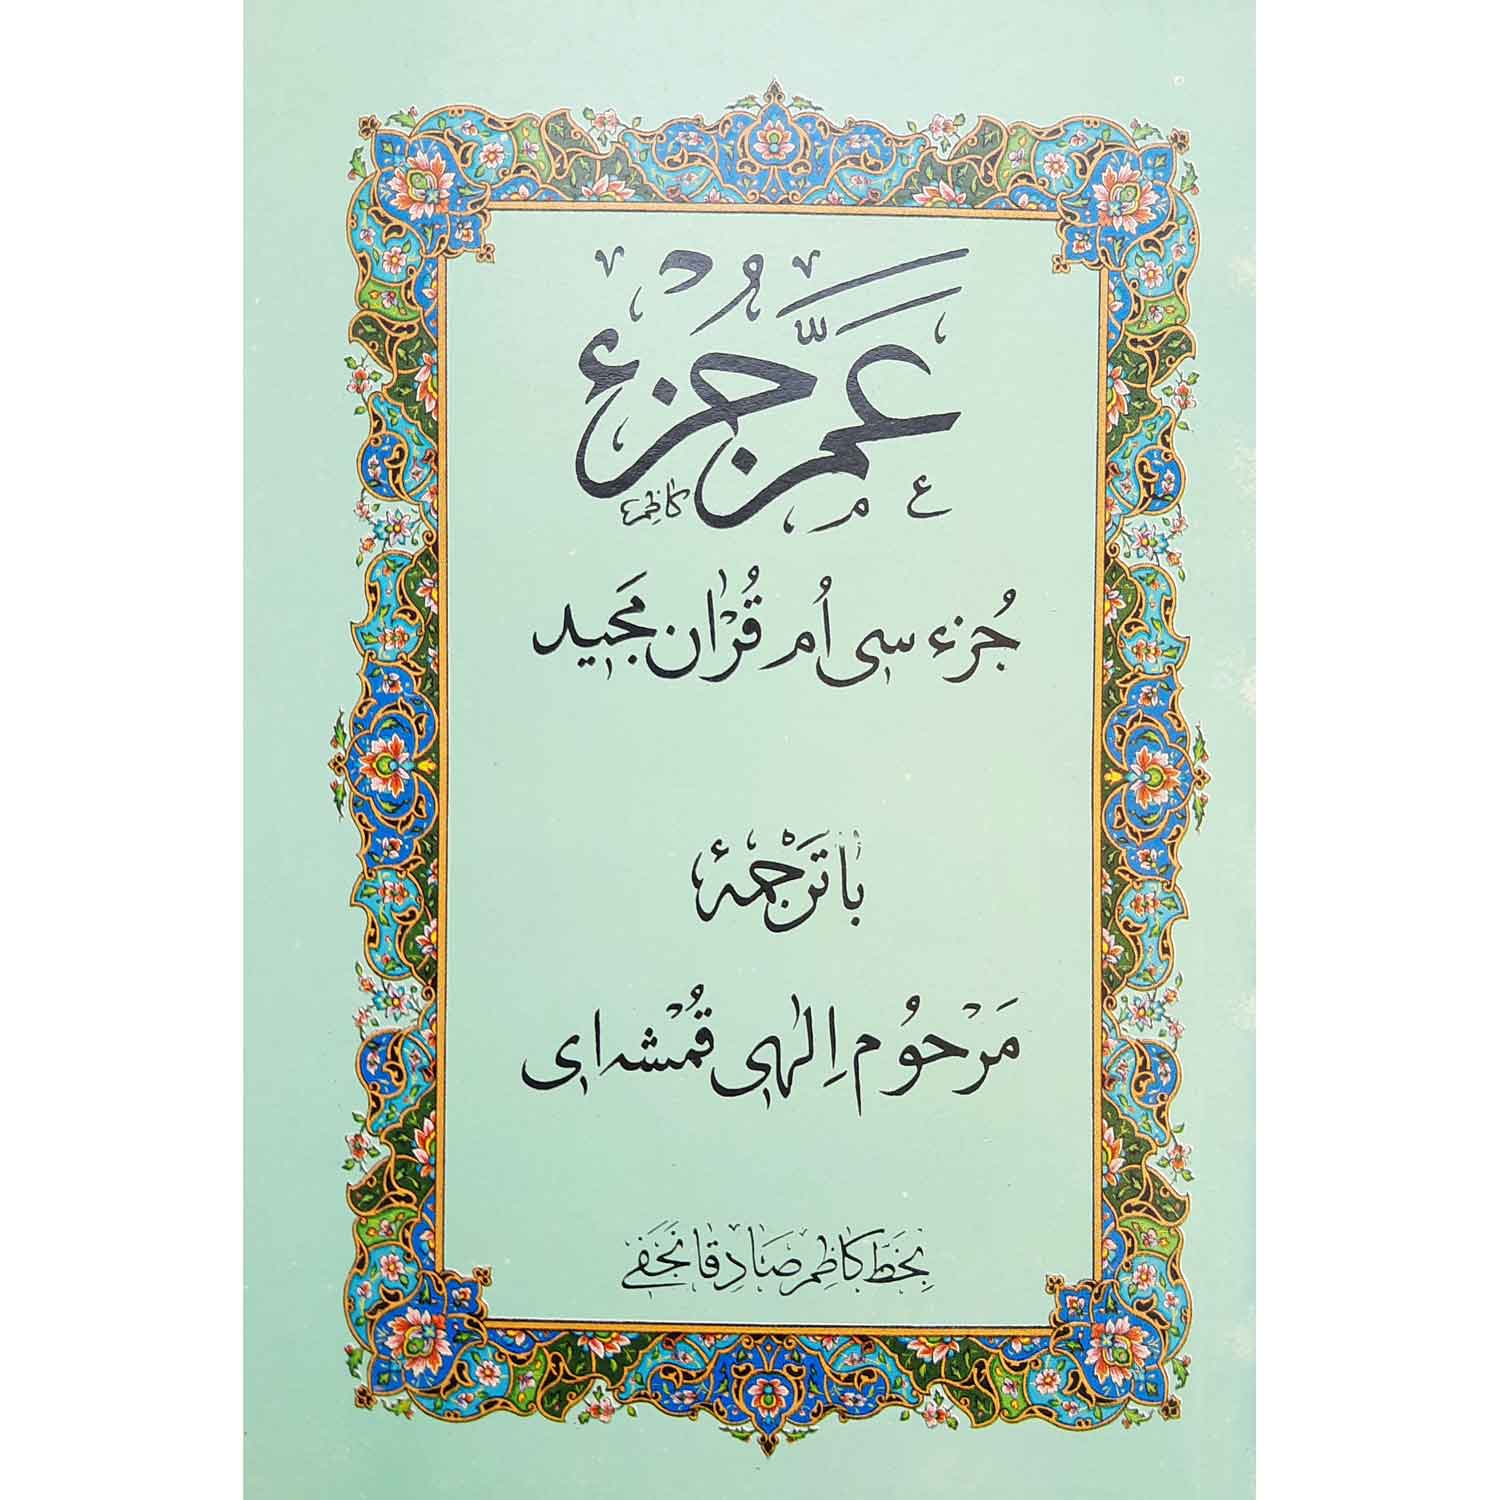 عَمَّ جُزْء
كاظم
جُزء سی اُم قُرْآن مَجید
با تَرجَمهٔ
مَرْحُوم اِلٰهی قُمْشه ای
بخَطّ كاظِم صَادِقَا نَجَفے